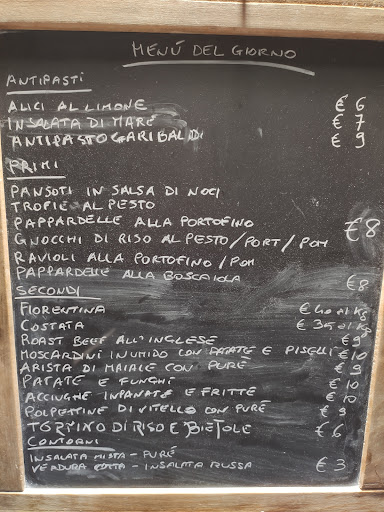 MENÚ DEL GIORNO
ANTIPASTI
ALICI AL LIMONE € 6
INSALATA DI MARE € 7
ANTIPASTO GARIBALDI € 9
PRIMI
PANSOTI IN SALSA DI NOCI
TROFIE AL PESTO
PAPPARDELLE ALLA PORTOFINO €8
GNOCCHI DI RISO AL PESTO/PORT/POM
RAVIOLI ALLA PORTOFINO/POM
PAPPARDELLE ALLA BOSCAIOLA €8
SECONDI
FIORENTINA € 40 al kg
COSTATA € 35 al kg
ROAST BEEF ALL'INGLESE € 9
MOSCARDINI IN UMIDO CON PATATE E PISELLI €10
ARISTA DI MAIALE CON PURÉ € 9
PATATE E FUNGHI € 10
ACCIUGHE IMPANATE E FRITTE € 10
POLPETTINE DI VITELLO CON PURÉ € 9
TORTINO DI RISO E BIETOLE € 6
CONTORNI
INSALATA MISTA - PURÉ
VERDURA COTTA - INSALATA RUSSA € 3